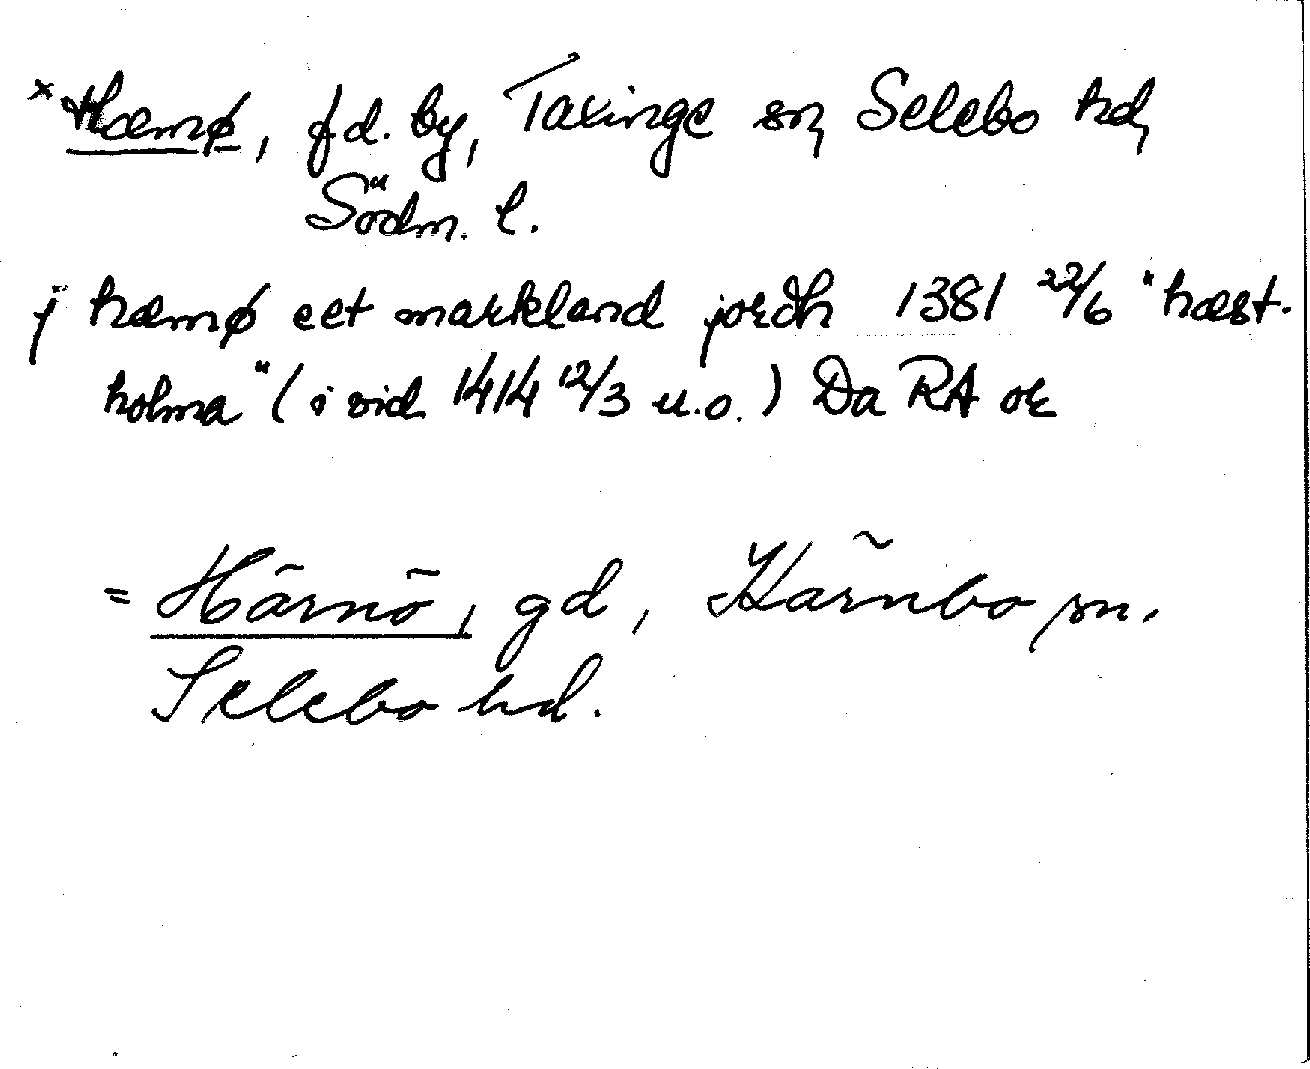 × Hæmø, f.d. by, Taxinge sn, Selebo hd,
Södm. l.
j hæmø eet markland jordh 1381 22/6 "hæst-
holma" (i vid 1414 12/3 u.o.) Da RA or
= Härnö, gd, Kärnbo sn.
Selebo hd.